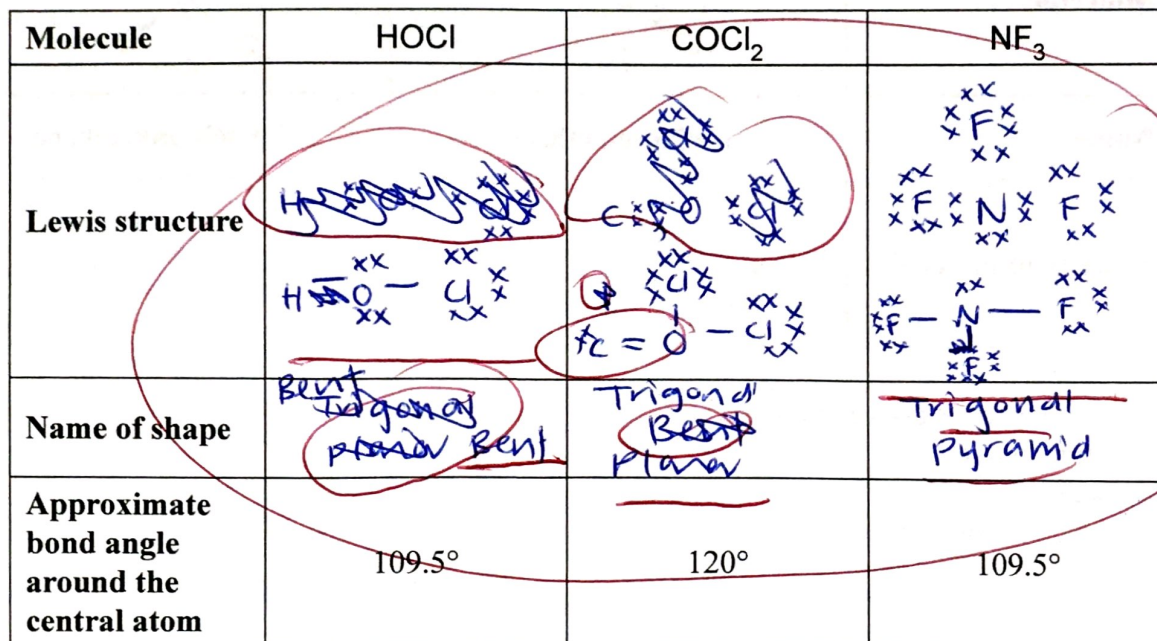 Molecule HOCl COCl₂ NF₃
Lewis structure
H O Cl
C O Cl
F
F N F
H O — Cl
Cl
C = O — Cl
F — N — F
F
Name of shape
Bent
Bent
Trigonal
Planar
Trigonal
Pyramid
Approximate
bond angle
around the
central atom
109.5° 120° 109.5°